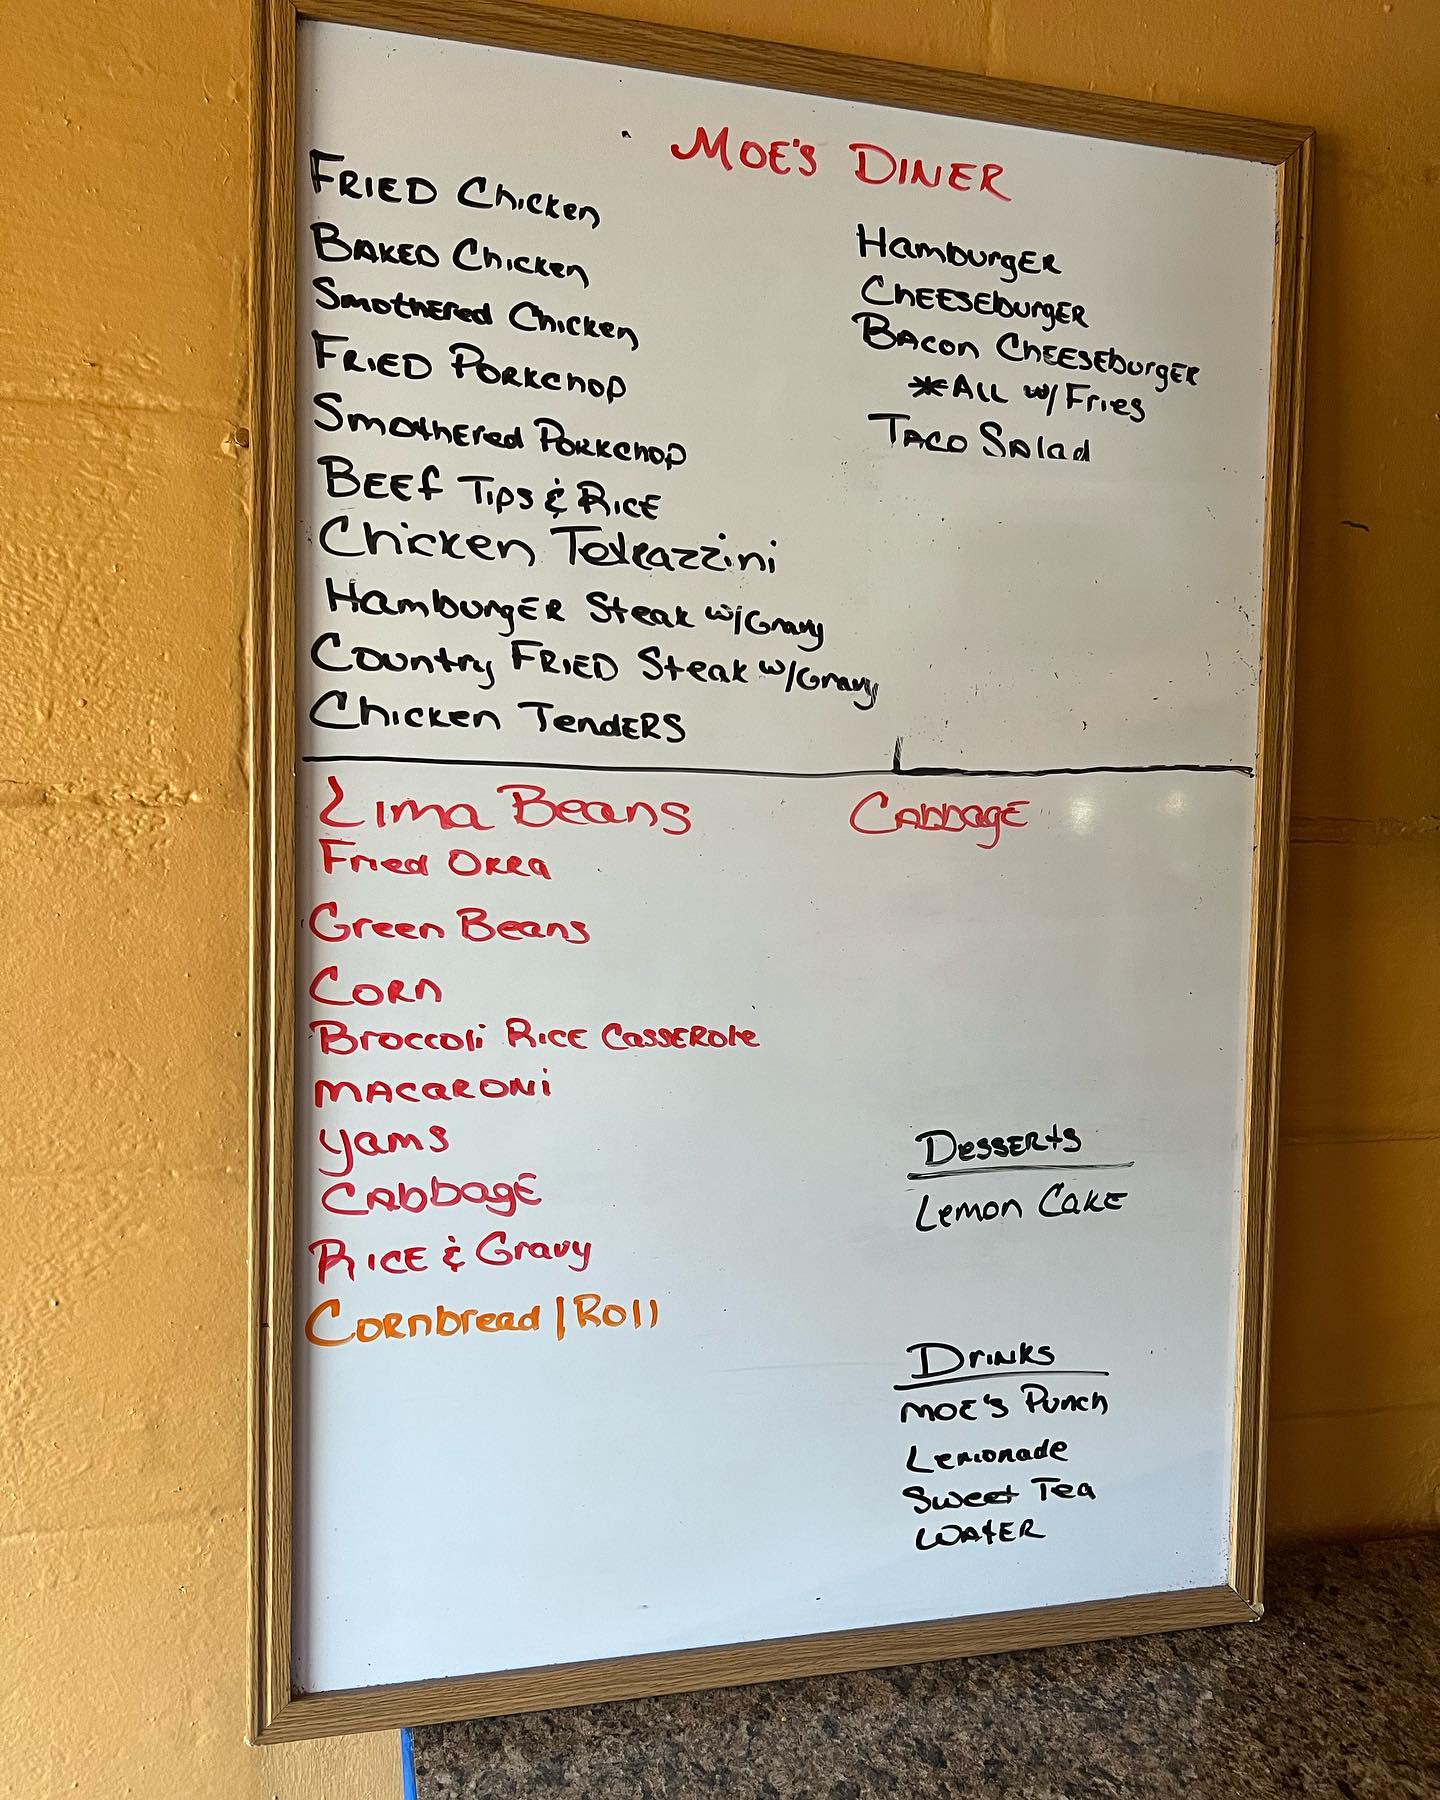 MOE'S DINER
FRIED Chicken
BAKED Chicken
Smothered Chicken
FRIED Porkchop
Smothered Porkchop
BEEf Tips & RICE
Chicken Tetrazzini
HamburgER Steak w/Gravy
Country FRIED Steak w/Gravy
Chicken TendERS
HamburgER
ChEESEburgER
BAcon ChEESEburgER
*All w/ Fries
TACO SAlad
Lima Beans
Fried OKRa
Green Beans
CORn
Broccoli RICE CasSERole
MACaRONi
yams
CAbbagE
RICE & Gravy
CORnbread/Roll
CAbbagE
DesSERts
Lemon CaKE
DrinKs
MOE'S Punch
Lemonade
Sweet Tea
WatER